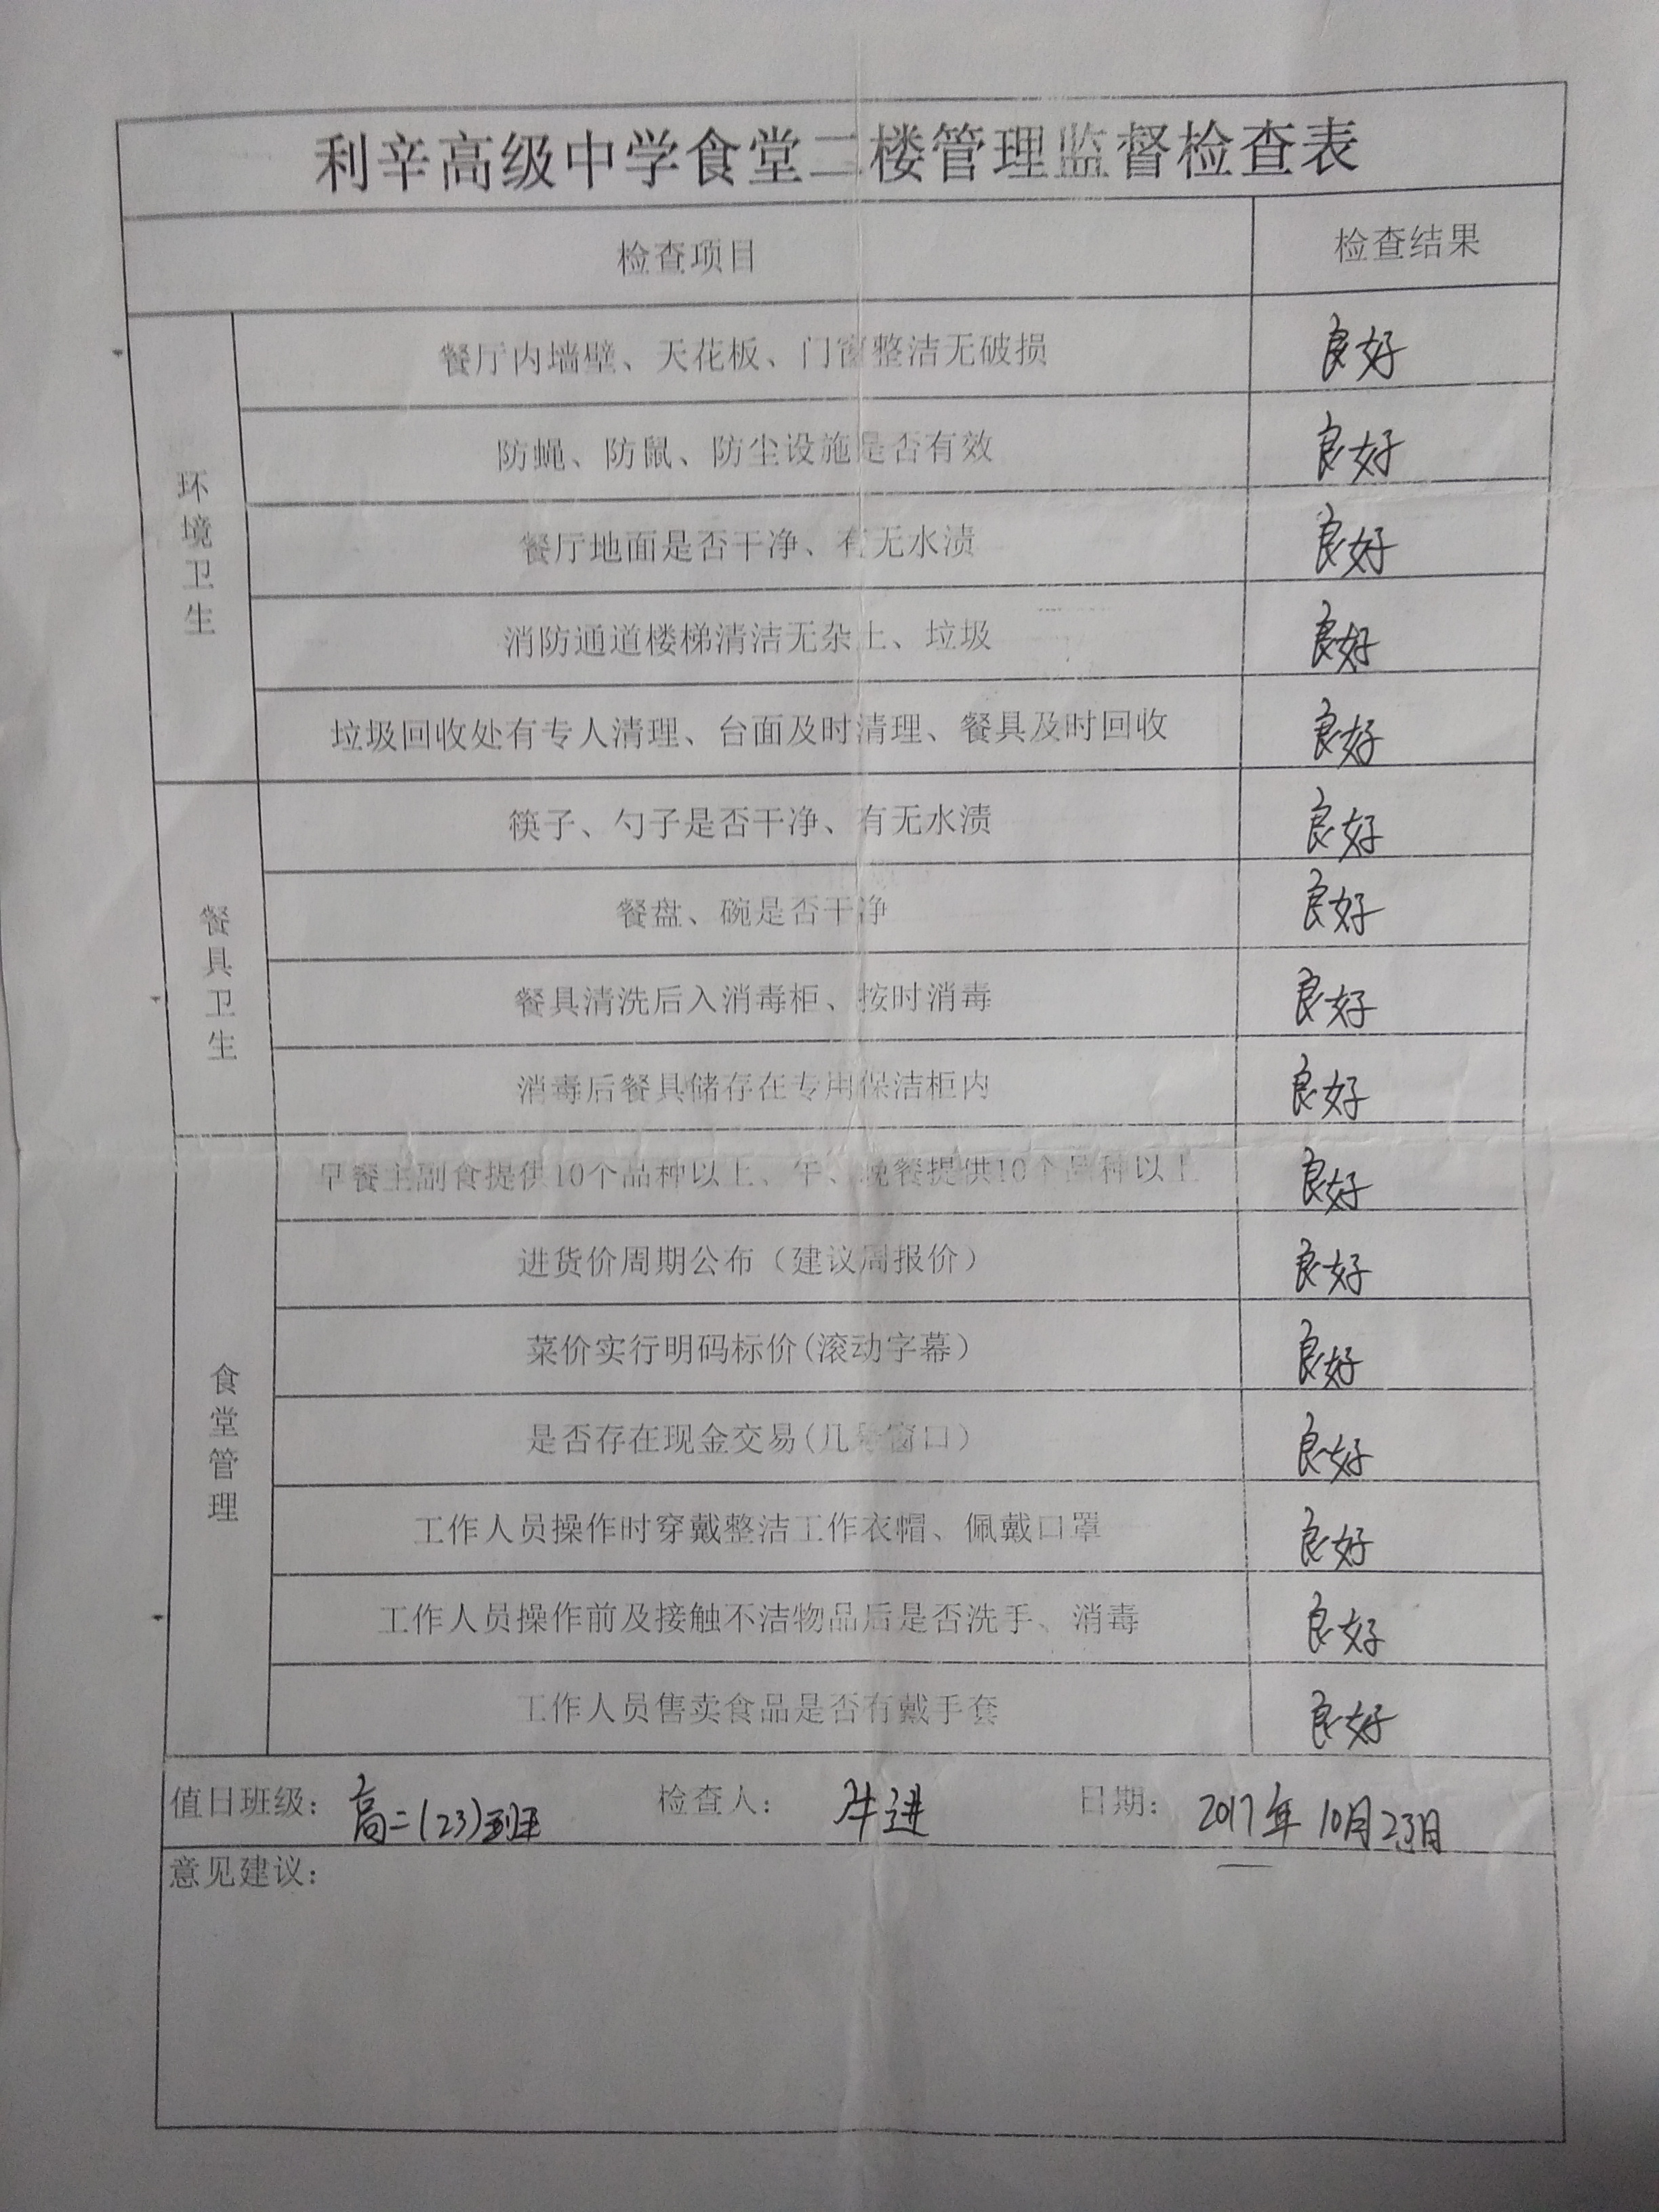 利辛高级中学食堂二楼管理监督检查表
检查项目 检查结果
环境卫生
餐厅内墙壁、天花板、门窗整洁无破损 良好
防蝇、防鼠、防尘设施是否有效 良好
餐厅地面是否干净、有无水渍 良好
消防通道楼梯清洁无杂土、垃圾 良好
垃圾回收处有专人清理、台面及时清理、餐具及时回收 良好
餐具卫生
筷子、勺子是否干净、有无水渍 良好
餐盘、碗是否干净 良好
餐具清洗后入消毒柜、按时消毒 良好
消毒后餐具储存在专用保洁柜内 良好
食堂管理
早餐主副食提供10个品种以上、午、晚餐提供10个品种以上 良好
进货价周期公布（建议周报价） 良好
菜价实行明码标价(滚动字幕） 良好
是否存在现金交易(几号窗口） 良好
工作人员操作时穿戴整洁工作衣帽、佩戴口罩 良好
工作人员操作前及接触不洁物品后是否洗手、消毒 良好
工作人员售卖食品是否有戴手套 良好
值日班级：高二(23)班 检查人：牛进 日期：2017年10月23日
意见建议：